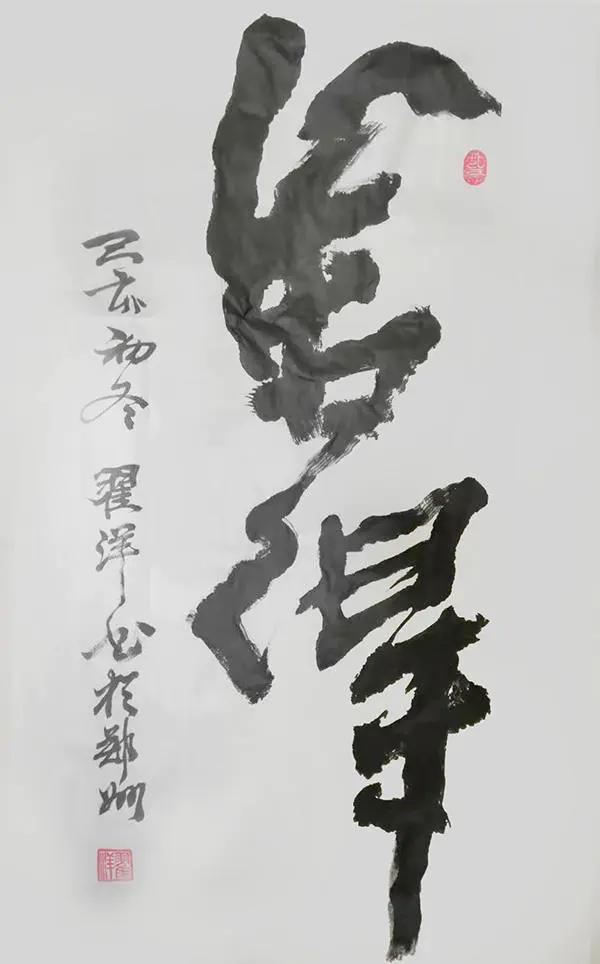 舍得
己亥初冬 翟洋书於郑州